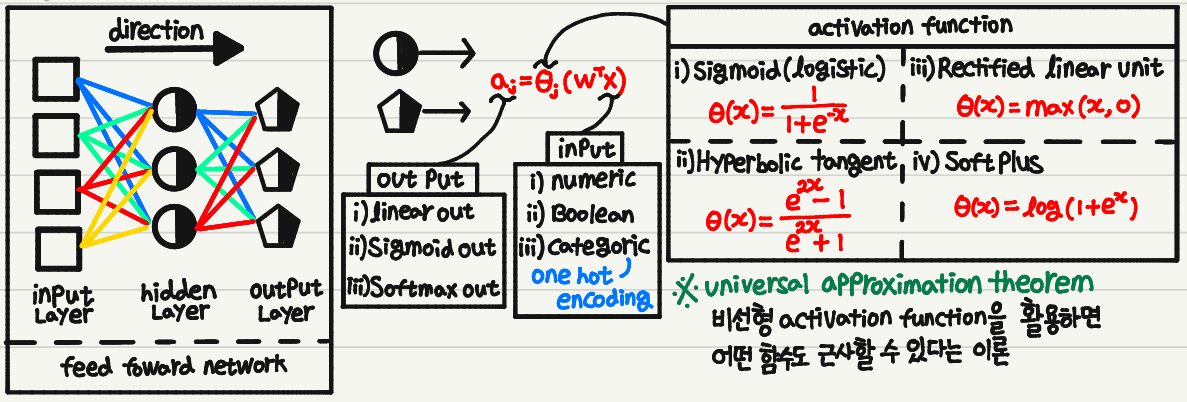 direction
input
Layer
hidden
Layer
outPut
Layer
feed foward network
aⱼ=θⱼ(wᵀx)
out Put
i) linear out
ii) Sigmoid out
iii) Softmax out
input
i) numeric
ii) Boolean
iii) categoric
one hot
encoding
activation function
i) Sigmoid (logistic)
θ(x) = 1/(1+e^-x)
ii) HyPerbolic tangent
θ(x) = (e^2x - 1)/(e^2x + 1)
iii) Rectified linear unit
θ(x) = max(x, 0)
iv) Soft Plus
θ(x) = log(1+e^x)
※ universal approximation theorem
비선형 activation function을 활용하면
어떤 함수도 근사할 수 있다는 이론